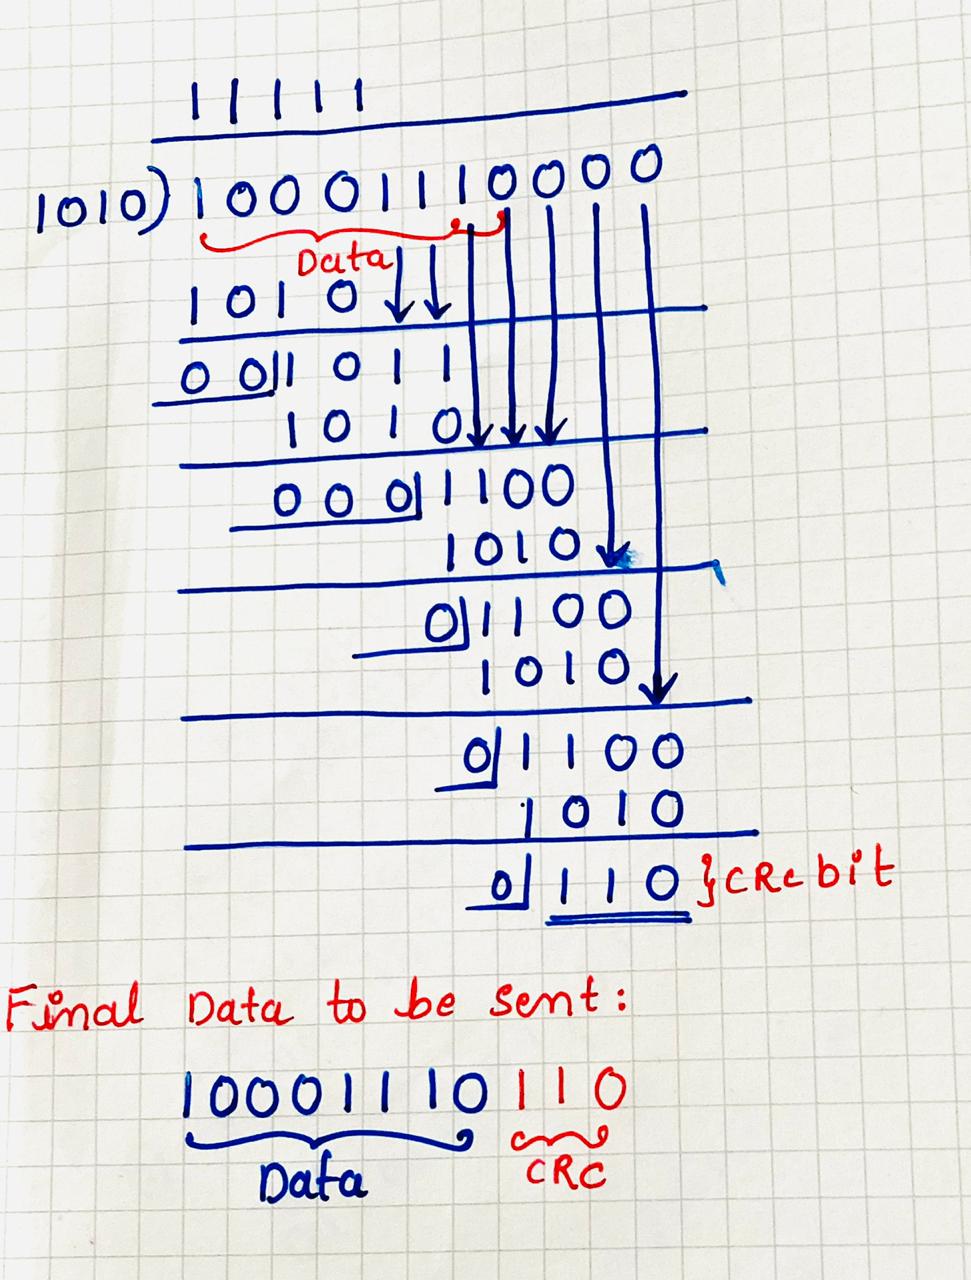 11111
1010) 10001110000
Data
1010
00 1011
1010
000 1100
1010
0 1100
1010
0 1100
1010
0 110 } CRC bit
Final Data to be sent:
10001110 110
Data CRC